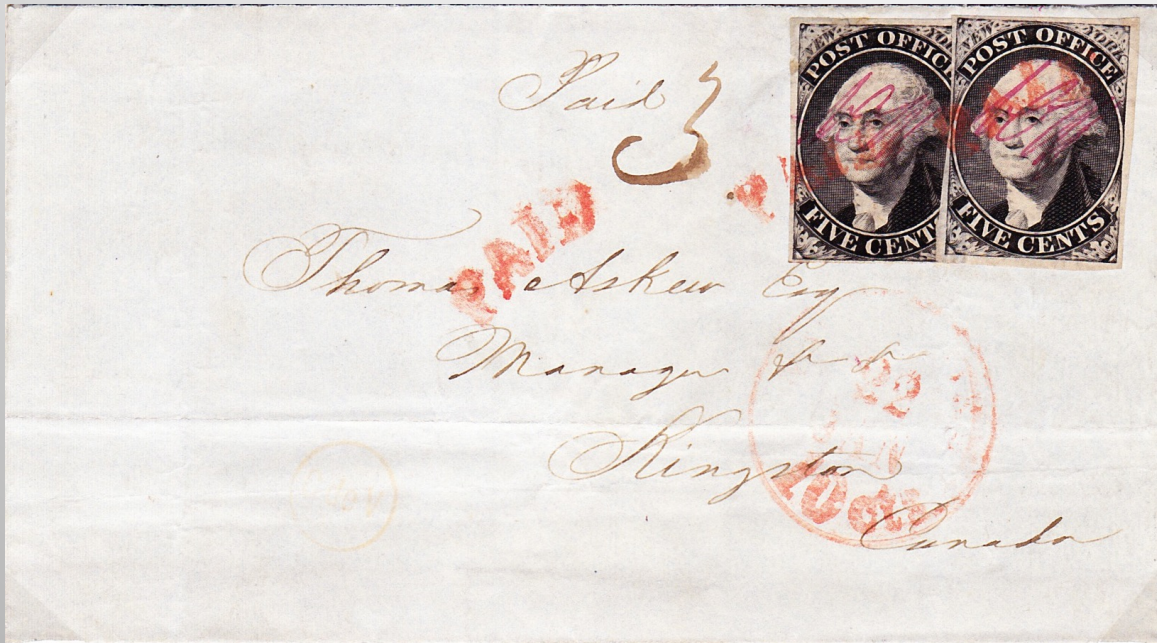 Paid 3
NEW YORK
POST OFFICE
FIVE CENTS
NEW YORK
POST OFFICE
FIVE CENTS
PAID
PAID
Thomas Askew Esq
Manager
22
10 cts
Kingston
Canada